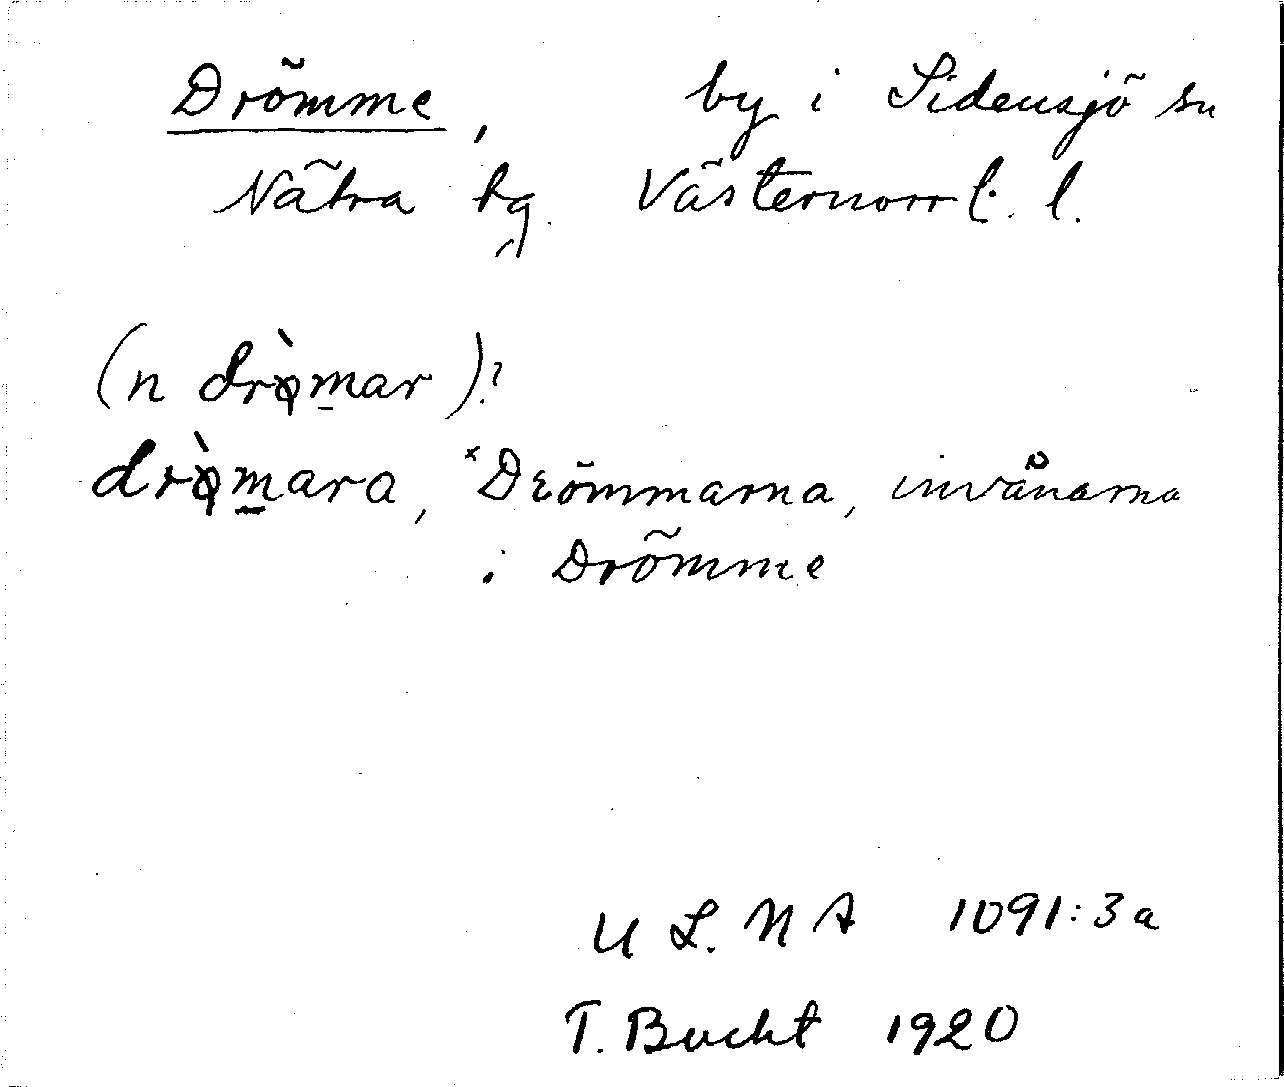 Drömme, by i Sidensjö sn
Nätra tg. Västernorrl. l.
(n drò̩m̲ar)?
drò̩m̲ara, *Drömmarna, invånarna
i Drömme
U L. N A 1091:3a
T. Bucht 1920